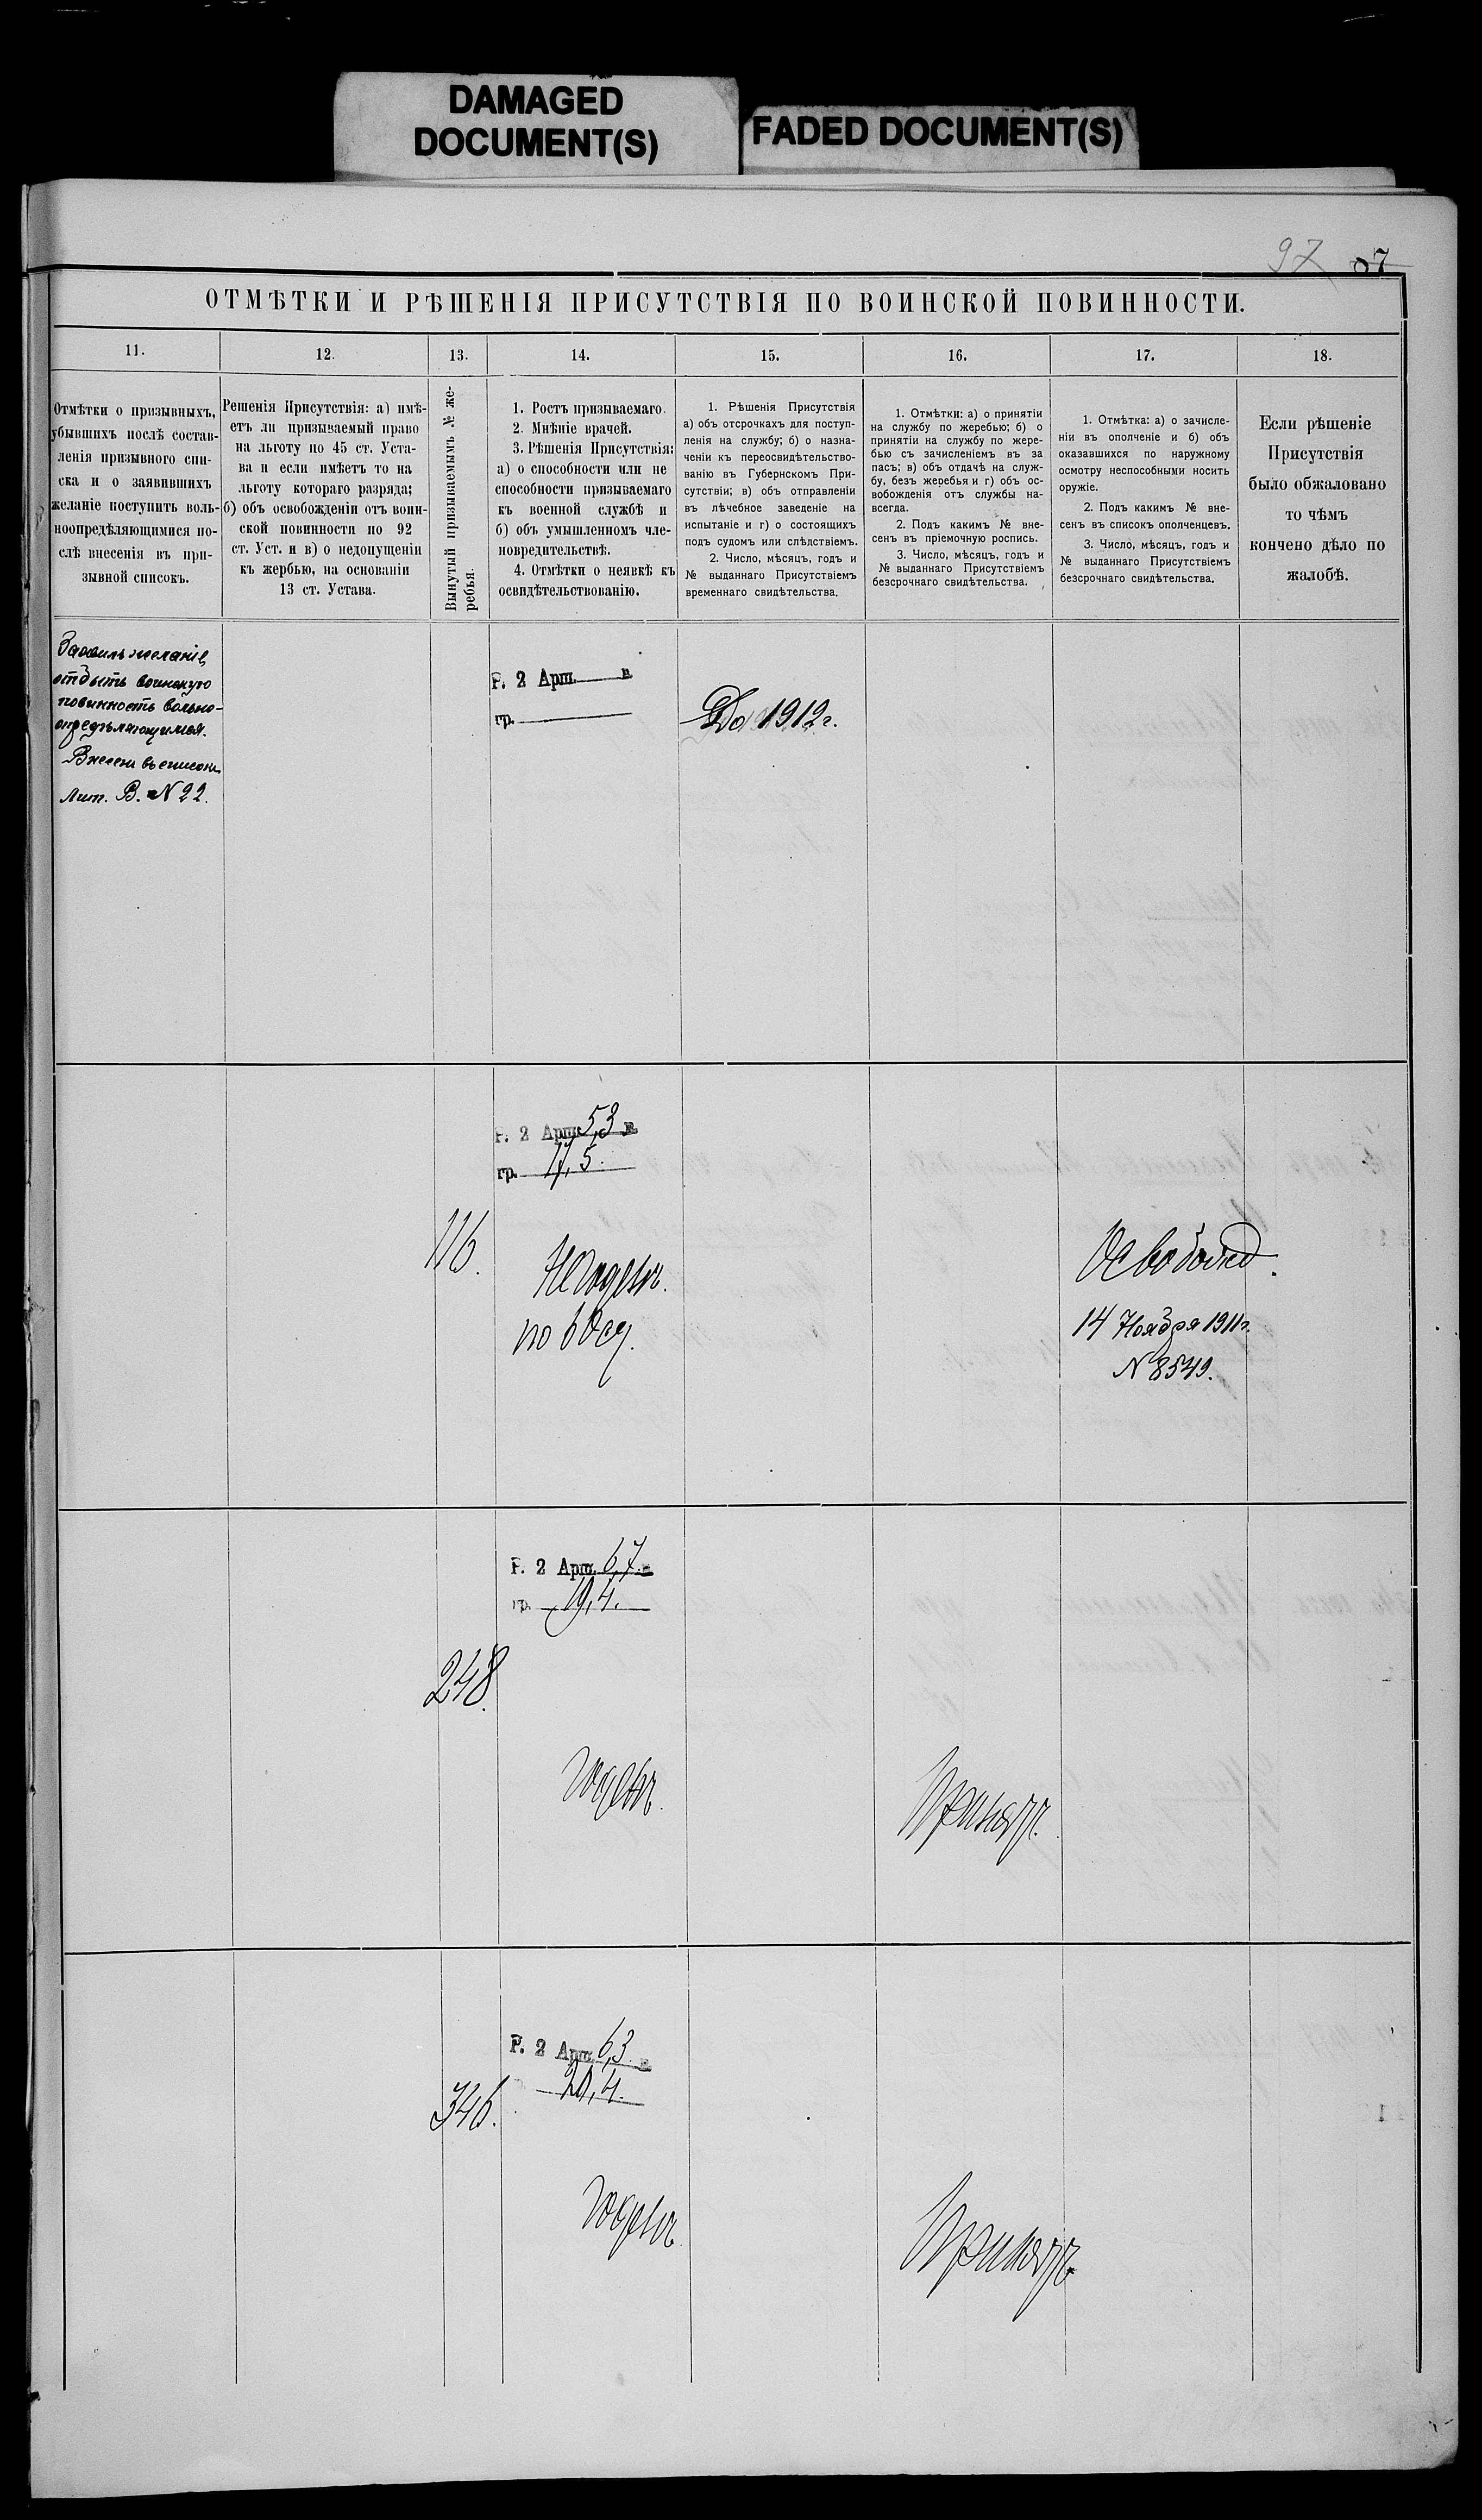 DAMAGED
DOCUMENT(S)
FADED DOCUMENT(S)
97
ОТМѢТКИ И РѢШЕНІЯ ПРИСУТСТВІЯ ПО ВОИНСКОЙ ПОВИННОСТИ.
11.
12.
13.
14.
15.
16.
17.
18.
Отмѣтки о призывныхъ,
убывшихъ послѣ состав-
ленія призывного спи-
ска и о заявившихъ
желаніе поступить воль-
ноопредѣляющимися по-
слѣ внесенія въ при-
зывной списокъ.
Решенія Присутствія: а) имѣ-
етъ ли призываемый право
на льготу по 45 ст. Уста-
ва и если имѣетъ то на
льготу котораго разряда;
б) объ освобожденіи отъ воин-
ской повинности по 92
ст. Уст. и в) о недопущеніи
къ жербью, на основаніи
13 ст. Устава.
Вынутый призываемымъ № же-
ребья.
1. Ростъ призываемаго.
2. Мнѣніе врачей.
3. Рѣшенія Присутствія:
а) о способности или не
способности призываемаго
къ военной службѣ и
б) объ умышленномъ чле-
новредительствѣ.
4. Отмѣтки о неявкѣ къ
освидѣтельствованію.
1. Рѣшенія Присутствія
а) объ отсрочкахъ для поступ-
ленія на службу; б) о назна-
ченіи къ переосвидѣтельство-
ванію въ Губернскомъ При-
сутствіи; в) объ отправленіи
въ лѣчебное заведеніе на
испытаніе и г) о состоящихъ
подъ судомъ или слѣдствіемъ.
2. Число, мѣсяцъ, годъ и
№ выданнаго Присутствіемъ
временнаго свидѣтельства.
1. Отмѣтки: а) о принятіи
на службу по жеребью; б) о
принятіи на службу по жере-
бью съ зачисленіемъ въ за
пасъ; в) объ отдачѣ на служ-
бу, безъ жеребья и г) объ ос-
вобожденія отъ службы на-
всегда.
2. Подъ какимъ № вне-
сенъ въ пріемочную роспись.
3. Число, мѣсяцъ, годъ и
№ выданнаго Присутствіемъ
безсрочнаго свидѣтельства.
1. Отмѣтка: а) о зачисле-
ніи въ ополченіе и б) объ
оказавшихся по наружному
осмотру неспособными носить
оружіе.
2. Подъ какимъ № вне-
сенъ въ списокъ ополченцевъ.
3. Число, мѣсяцъ, годъ и
№ выданнаго Присутствіемъ
безсрочнаго свидѣтельства.
Если рѣшеніе
Присутствія
было обжаловано
то чѣмъ
кончено дѣло по
жалобѣ.
Заявилъ желаніе
отбыть воинскую
повинность вольно-
опредѣляющимся.
Внесенъ въ списокъ
Лит. В. № 22.
Р. 2 Арш. в
гр.
До 1912 г.
Р. 2 Арш. 5,3 в.
гр. 17,5.
116.
Негоденъ.
по
Освобожд.
14 Ноября 1911 г.
№ 8549.
Р. 2 Арш. 6,7. в
гр. 19,4.
248.
Годенъ.
Принятъ.
Р. 2 Арш. 6,3. в
20,4.
346.
Годенъ
Принятъ.